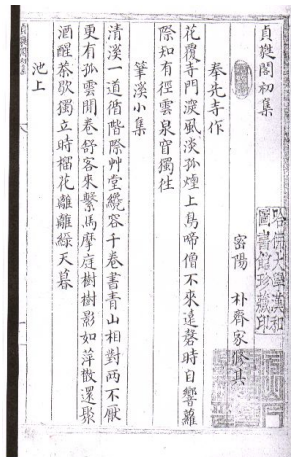 貞蕤閣初集
密陽 朴齊家修其
奉先寺作
花覆寺門深風淡孤煙上鳥啼僧不來遠磬時自響蘿
際知有徑雲泉窅獨往
筆溪小集
清溪一道循階際艸堂纔容千卷書青山相對兩不厭
更有孤雲閒卷舒客來繫馬摩庭樹樹影如萍散還聚
酒醒茶歇獨立時榴花離離綠天暮
池上
哈佛大學漢和
圖書館珍藏印